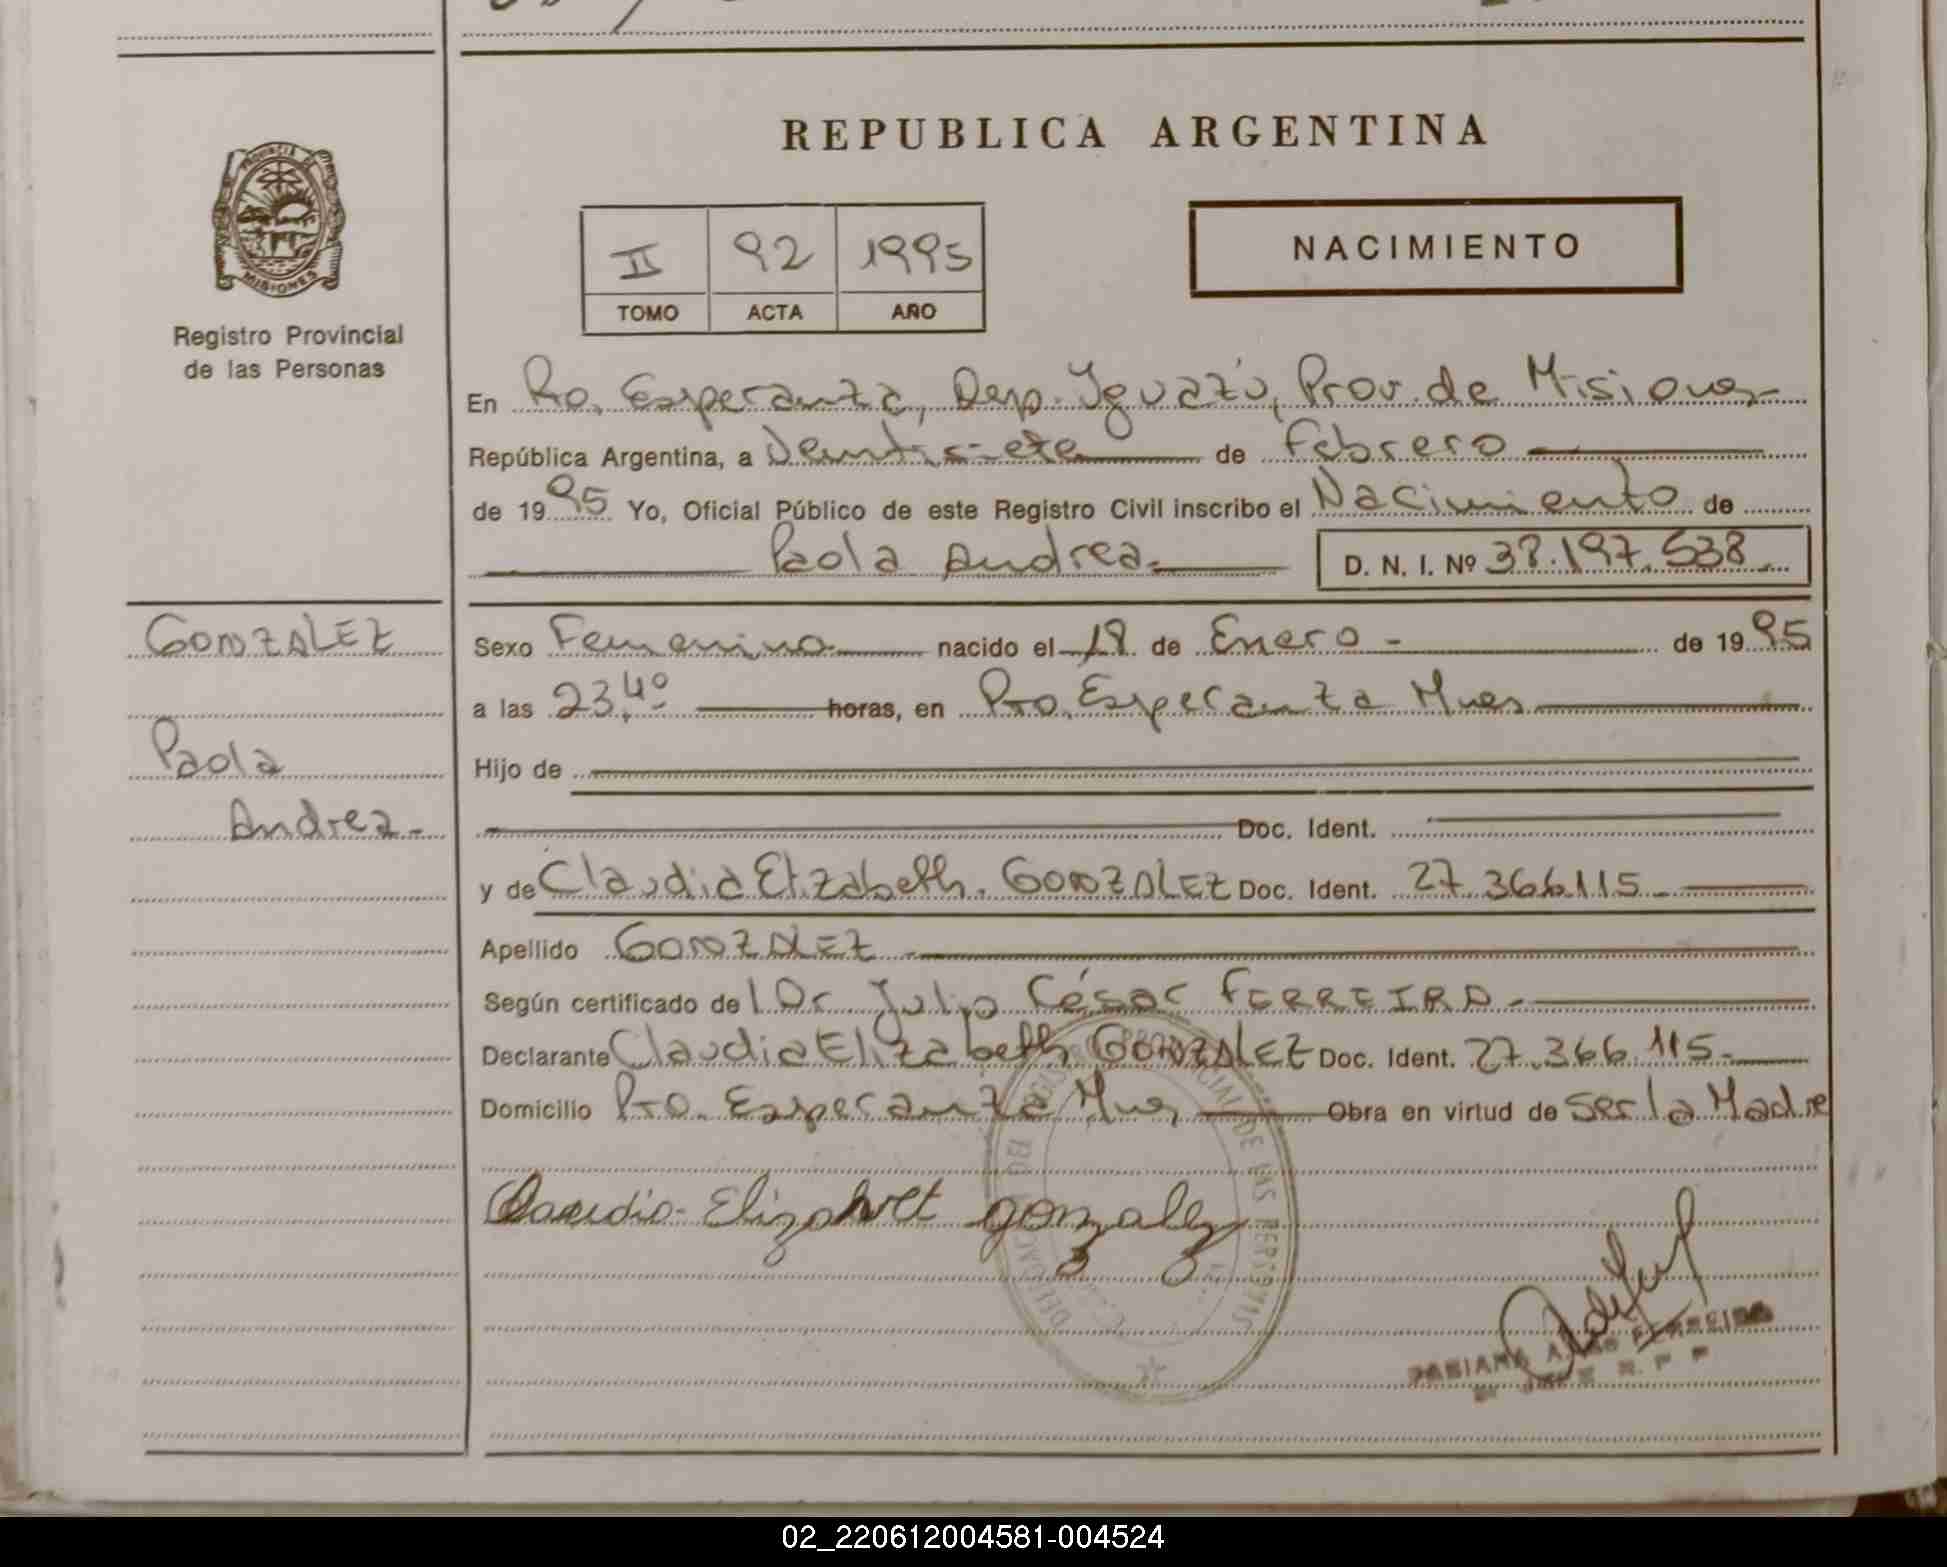 REPUBLICA ARGENTINA
PROVINCIA DE
MISIONES
Registro Provincial
de las Personas
II 92 1995
TOMO ACTA AÑO
NACIMIENTO
En Pto. Esperanza, Dep. Iguazú, Prov. de Misiones
República Argentina, a Veintisiete de Febrero
de 1995 Yo, Oficial Público de este Registro Civil inscribo el Nacimiento de
Paola Andrea. D. N. I. Nº 38.197.538
GONZALEZ
Paola
Andrea.
Sexo Femenino nacido el 18 de Enero - de 1995
a las 23,40 horas, en Pto. Esperanza Mnes
Hijo de
Doc. Ident.
y de Claudia Elizabeth. GONZALEZ Doc. Ident. 27.366.115
Apellido GONZALEZ
Según certificado de l Dr. Julio César FERREIRA.
Declarante Claudia Elizabeth GONZALEZ Doc. Ident. 27.366.115.
Domicilio Pto. Esperanza Mnes Obra en virtud de ser la Madre
Claudia Elizabet gonzalez
02_220612004581-004524